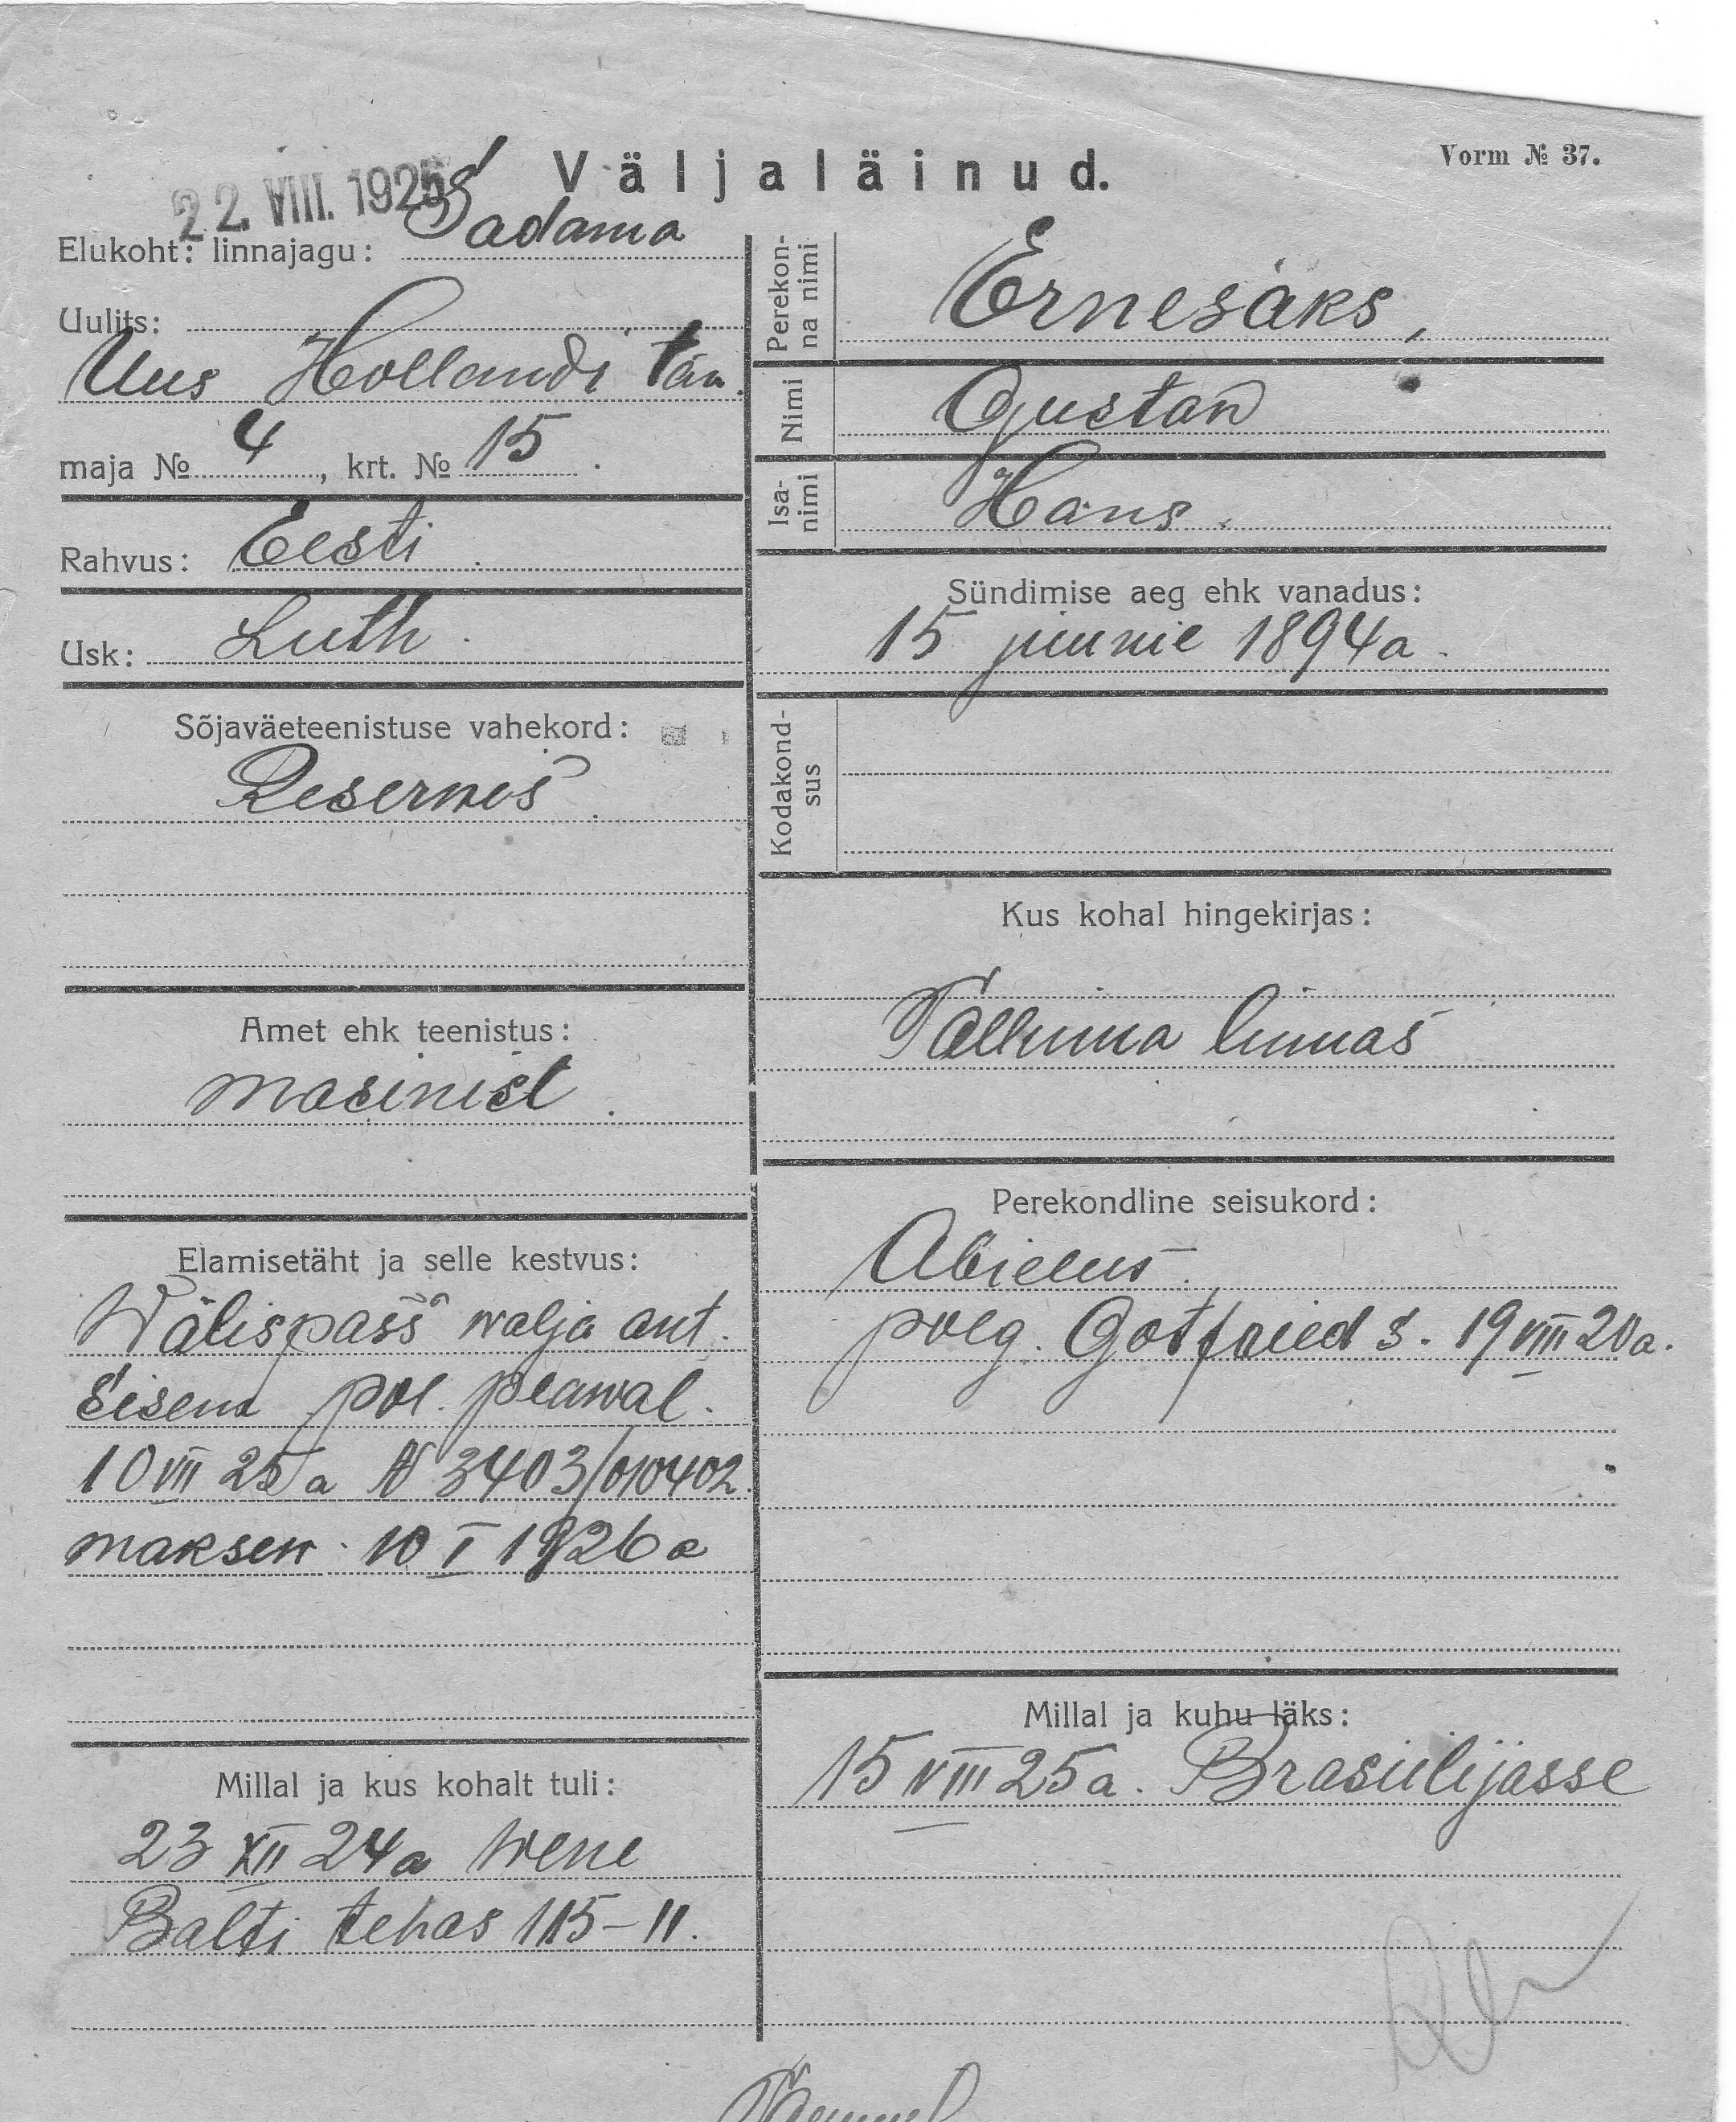 Vorm № 37.
Väljaläinud.
22. VIII. 1925
Elukoht: linnajagu: Sadama
Uulits:
Uus Hollandi tän.
maja № 4, krt. № 15
Rahvus: Eesti
Usk: Luth.
Sõjaväeteenistuse vahekord:
Reserwis
Amet ehk teenistus:
masinist
Elamisetäht ja selle kestvus:
Wälispass walja ant.
Sisem pol. peawal.
10 VII 25 a № 3403/010402
maksew 10 I 1926 a
Millal ja kus kohalt tuli:
23 XII 24 a Wene
Balti tehas 115–11.
Perekonna nimi
Ernesaks,
Nimi
Gustaw
Isanimi
Hans.
Sündimise aeg ehk vanadus:
15 juunil 1894 a.
Kodakondsus
Kus kohal hingekirjas:
Tallinna linnas
Perekondline seisukord:
Abielus
poeg. Gotfried s. 19 VIII 20 a.
Millal ja kuhu läks:
15 VIII 25 a. Brasiilijasse